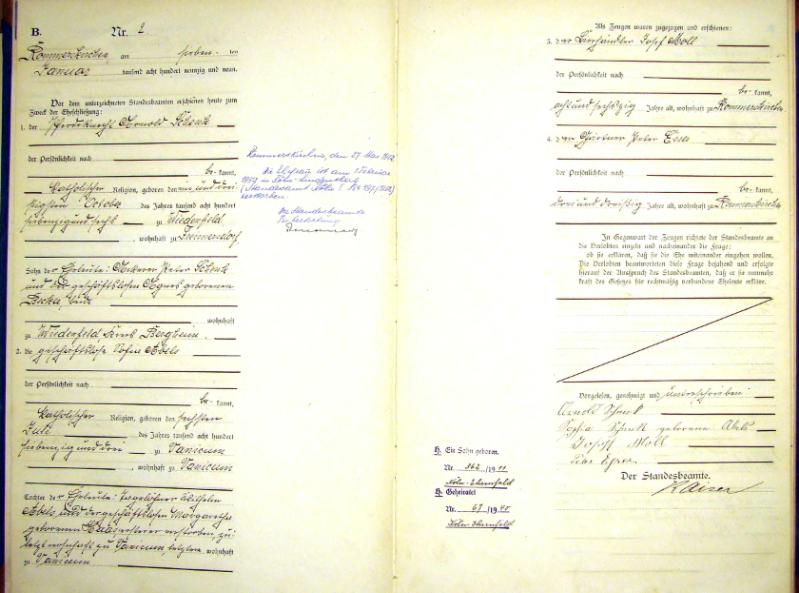 B. Nr. 2
Rommerskirchen, am sieben ten
Januar tausend acht hundert neunzig und neun.
Vor dem unterzeichneten Standesbeamten erschienen heute zum
Zweck der Eheschließung:
1. der Pferdeknecht Arnold Schenk
der Persönlichkeit nach
be- kannt,
katholischer Religion, geboren den ein und drei
ßigsten October des Jahres tausend acht hundert
siebenzig und sechs zu Wiederfeld
, wohnhaft zu
Sohn der Eheleute: Ackerer Peter Schenk
und der geschäftslosen Agnes geborenen
Becker, beide
wohnhaft
zu Wiederfeld, Kreis Bergheim.
2. die geschäftslose Sofia Abels
der Persönlichkeit nach
be- kannt,
katholischer Religion, geboren den sechsten
Juli des Jahres tausend acht hundert
siebenzig und drei zu Vanicum
, wohnhaft zu Vanicum
Tochter der Eheleute: Tagelöhner Wilhelm
Abels und der geschäftslosen Margaretha
geborenen ersterer verstorben, zu-
letzt wohnhaft zu Vanicum, letztere wohnhaft
zu Vanicum
Rommerskirchen, den 27. Mai
Die Ehefrau ist am
in Köln-Lindenthal
(Standesamt Köln
verstorben.
Der Standesbeamte
In Vertretung
H. Ein Sohn geboren.
Nr. 362/1911
Köln-Ehrenfeld
H. Geheiratet
Nr. /1940
Köln-Ehrenfeld
Als Zeugen waren zugezogen und erschienen:
3. der Josef Moll
der Persönlichkeit nach
be- kannt,
acht und sechszig Jahre alt, wohnhaft zu Rommerskirchen
4. der Gärtner Peter
der Persönlichkeit nach
be- kannt,
drei und dreißig Jahre alt, wohnhaft zu Rommerskirchen
In Gegenwart der Zeugen richtete der Standesbeamte an
die Verlobten einzeln und nacheinander die Frage:
ob sie erklären, daß sie die Ehe miteinander eingehen wollen.
Die Verlobten beantworteten diese Frage bejahend und erfolgte
hierauf der Ausspruch des Standesbeamten, daß er sie nunmehr
kraft des Gesetzes für rechtmäßig verbundene Eheleute erkläre.
Vorgelesen, genehmigt und unterschrieben
Arnold Schenk
Sophia Schenk geborene Abels
Joseph Moll
Der Standesbeamte.
Kaiser